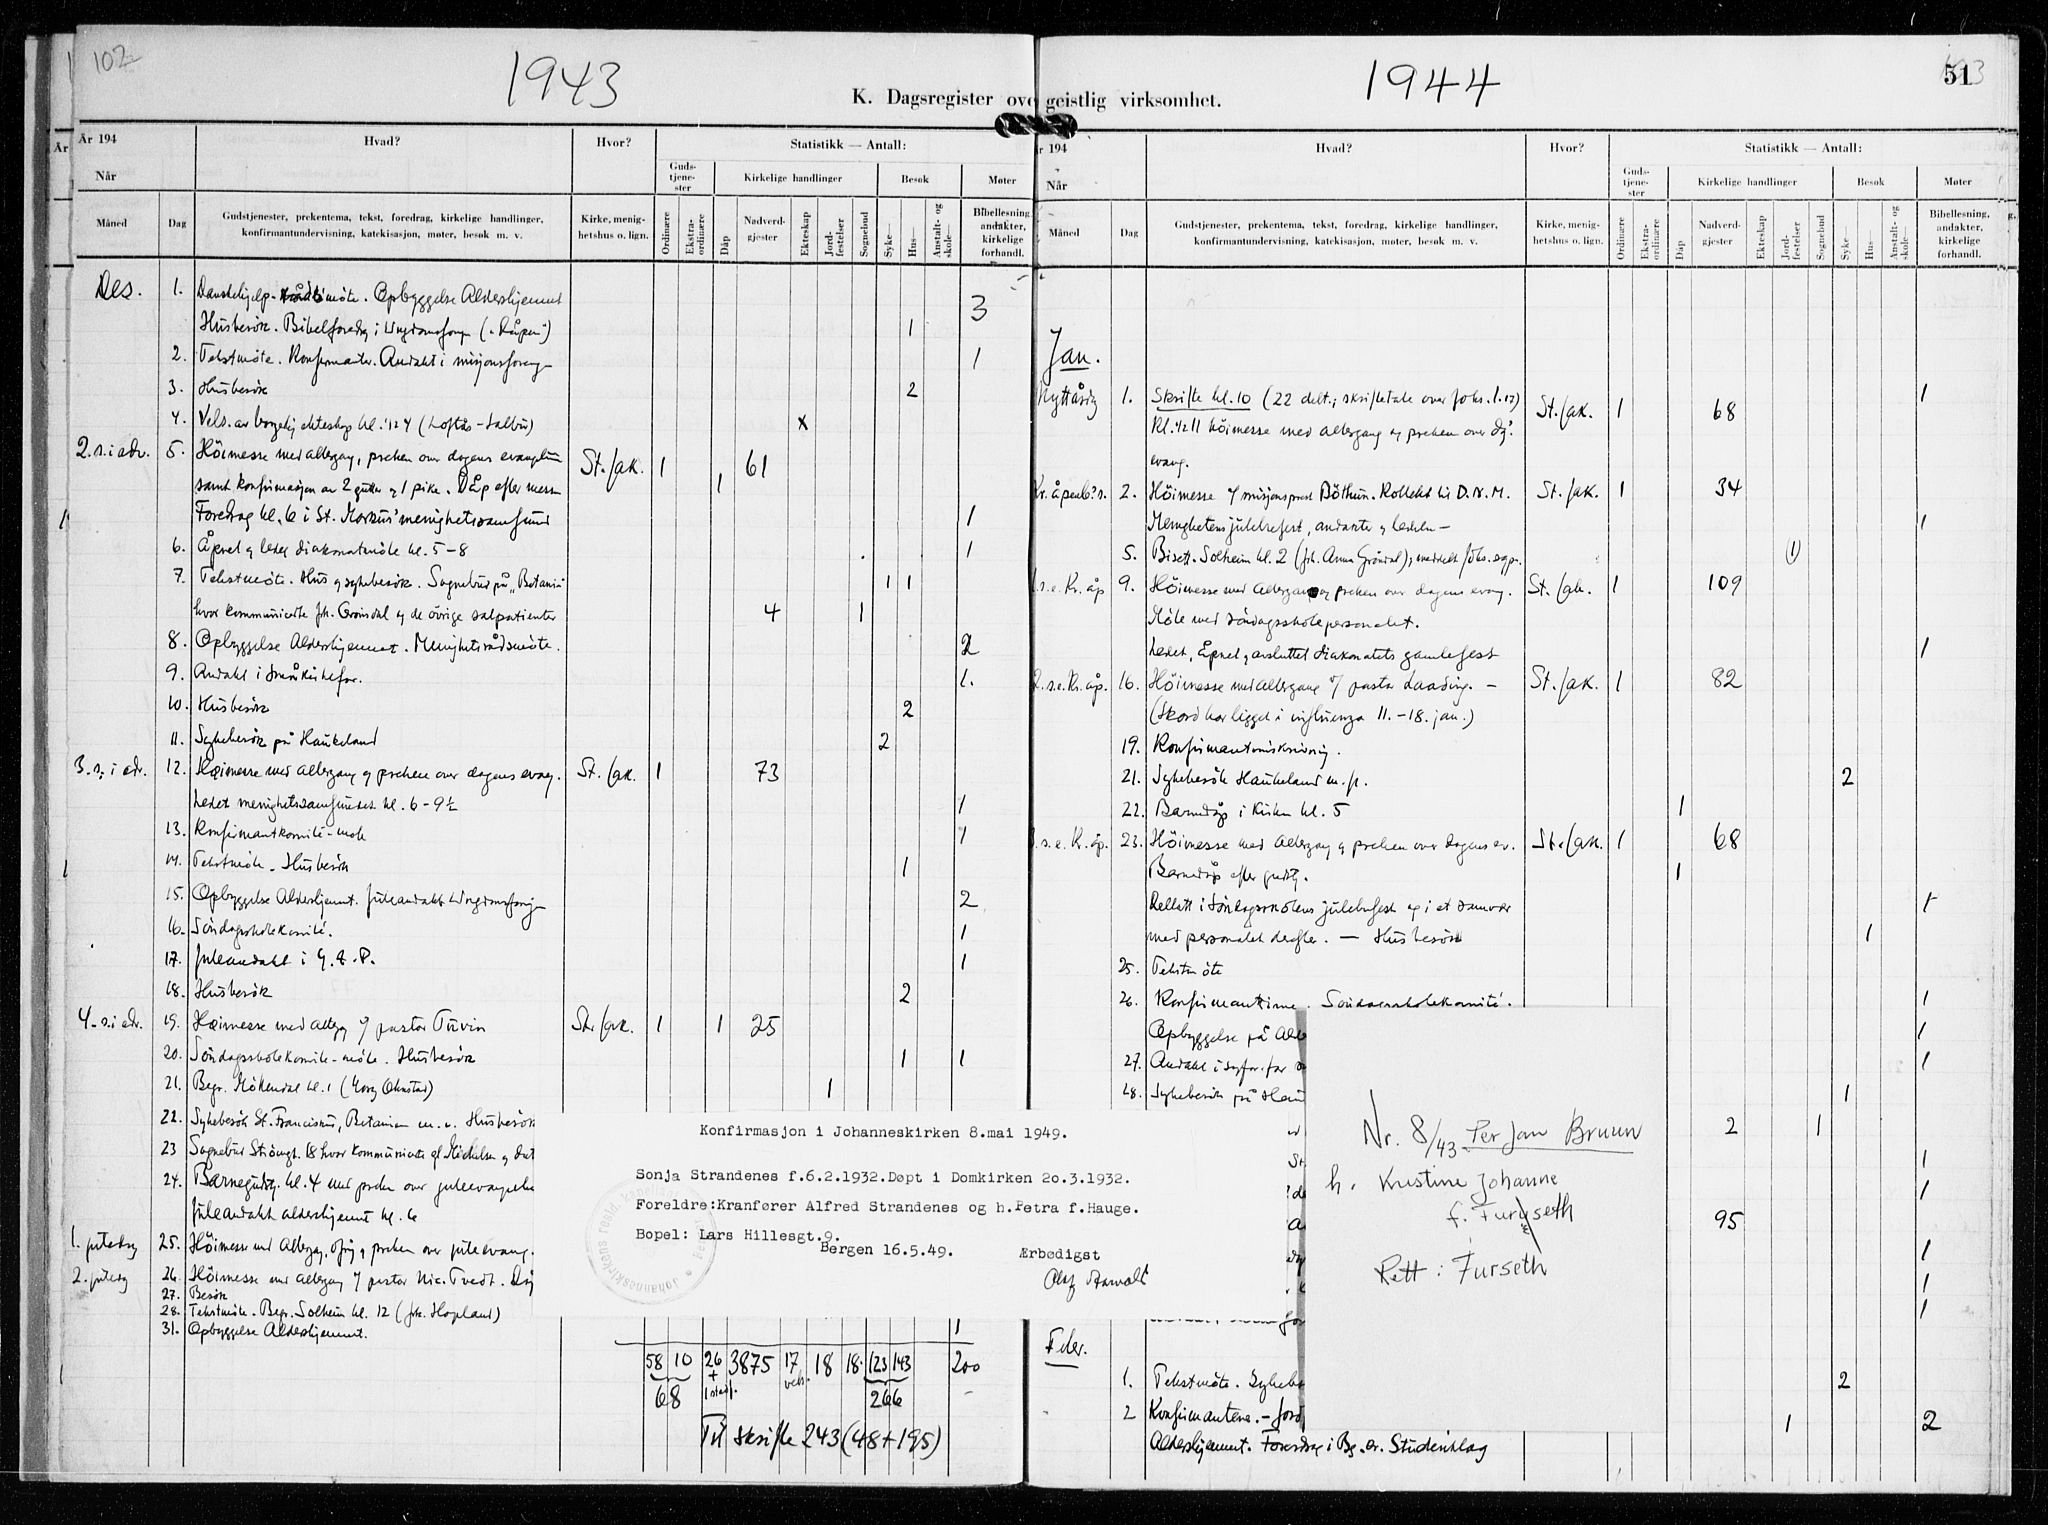 102
1943
K. Dagsregister ove
År 194
Hvad?
Hvor?
Statistikk — Antall:
Når
Guds-tjene-ster
Kirkelige handlinger
Besøk
Møter
Måned
Dag
Gudstjenester, prekentema, tekst, foredrag, kirkelige handlinger,
konfirmantundervisning, katekisasjon, møter, besøk m. v.
Kirke, menig-
hetshus o. lign.
Ordinære
Ekstra-ordinære
Dåp
Nadverd-gjester
Ekteskap
Jord-festelser
Sognebud
Syke—
Hus—
Anstalt- og skole—
Bibellesning, andakter, kirkelige forhandl.
Des. 1. Danskehjelp- møte. Opbyggelse Aldershjemmet 3
Husbesök. Bibelforedrag i Ungdomsforen ("Dåpen") 1
2. Tekstmöte. Konfirmanter. Andakt i misjonsforening 1
3. Husbesök 2
4. Vels. av borgelig ekteskap kl. 1/2 4 (Loftås - Salbu) x
2. s. i adv. 5. Höimesse med altergang, preken over dagens evangelium St. Jak. 1 61
samt konfirmasjon av 2 gutter og 1 pike. Dåp efter messen 1
Foredrag kl. 6 i St. Markus' menighetssamfund 1
6. Åpnet og ledet diakonatmöte kl. 5-8 1
7. Tekstmöte. Hus og sykebesök. Sognebud på "Betania" 1 1
hvor kommuniserte frk. Grönsdal og de övrige salpatienter 4 1
8. Opbyggelse Aldershjemmet. Menighetsrådsmöte. 2
9. Andakt i Småkirkefor. 1.
10. Husbesök 2
11. Sykebesök på Haukeland 2
3. s. i adv. 12. Höimesse med altergang og preken over dagens evang. St. Jak. 1 73
Ledet menighetssamfundet kl. 6 - 9 1/2 1
13. Konfirmantkomité-möte 1
14. Tekstmöte. Husbesök 1
15. Opbyggelse Aldershjemmet. Juleandakt Ungdomsforen 2
16. Söndagsskolekomité. 1
17. Juleandakt i G.A.P. 1
18. Husbesök 2
4. s. i adv. 19. Höimesse med alterg. v/ pastor Tuvin St. Jak. 1 1 25
20. Söndagsskolekomite-möte. Husbesök 1 1
21. Begr. Möllendal kl. 1 (Georg Olmstad) 1
22. Sykebesök St. Franciskus, Betanien m. v. Husbesök
23 Sognebud Strömgt. 18 hvor kommuniserte
24. Barnegudstj. kl. 4 med preken over juleevangeliet
Juleandakt aldershjemmet kl. 6
1. juledag 25. Höimesse med altergang, og preken over juleevang.
2. juledag 26. Höimesse med altergang v/ pastor Nic. Tvedt. Dåp
27. Besök
28. Tekstmöte. Begr. Solheim kl. 12 (frk. Hopland)
31. Opbyggelse Aldershjemmet. 1
58 10 26 3875 17 18 18. 123 143 200
+ 1 vels.
68 266
Til skrifte 243 (48 + 195)
Konfirmasjon i Johanneskirken 8.mai 1949.
Sonja Strandenes f.6.2.1932.Døpt i Domkirken 2o.3.1932.
Foreldre:Kranfører Alfred Strandenes og h.Petra f.Hauge.
Bopel: Lars Hillesgt.9.
Bergen 16.5.49.
Ærbødigst
1944
geistlig virksomhet.
51
r 194
Hvad?
Hvor?
Statistikk — Antall:
Når
Guds-tjene-ster
Kirkelige handlinger
Besøk
Møter
Måned
Dag
Gudstjenester, prekentema, tekst, foredrag, kirkelige handlinger,
konfirmantundervisning, katekisasjon, møter, besøk m. v.
Kirke, menig-
hetshus o. lign.
Ordinære
Ekstra-ordinære
Dåp
Nadverd-gjester
Ekteskap
Jord-festelser
Sognebud
Syke—
Hus—
Anstalt- og skole—
Bibellesning, andakter, kirkelige forhandl.
Jan.
Nyttårsdg 1. Skrifte kl. 10 (22 delt.; skriftetale over Johs. 1.17) St. Jak. 1 68 1
Kl. 1/2 11 höimesse med altergang og preken over dg's
evang.
Kr. åpenb.s. 2. Höimesse v/ misjonsprest Böthun. Kollekt til D.N.M. St. Jak. 1 34
Menighetens julefest, andakt og ledelse - 1
5. Biset. Solheim kl. 2 (frk. Anna Gröndal); (1)
1. s. e. Kr. åp 9. Höimesse med altergang og preken over dagens evang. St. Jak. 1 109
Möte med söndagsskolepersonalet.
Ledet, åpnet og avsluttet diakonatets gamlefest 1
2. s. e. Kr. åp. 16. Höimesse med altergang v/ pastor Laading. - St. Jak. 1 82
(Skord har ligget i influenza 11.-18. jan.)
19. Konfirmantinnskrivning.
21. Sykebesök Haukeland m. fl. 2
22. Barnedåp i kirken kl. 5 1
3. s. e. Kr. åp. 23. Höimesse med altergang og preken over dagens ev. St. Jak. 1 68
Barnedåp efter gudstj. 1
Deltatt i Söndagsskolens julefest og i et samvær 1
med personalet derefter. - Husbesök 1
25. Tekstmöte
26. Konfirmanttime. Söndagsskolekomité. 1
Opbyggelse på Alde 1
27. Andakt i sykfor. for 1
28. Sykebesök på Hau 1
2 1
1
1
95
1
1
1
Nr. 8/43 Per Jan Bruun
h. Kristine Johanne
f. Furuseth
Rett: Furseth
Feber.
1. Tekstmöte. Sykebe 2
2 Konfirmantene. - Jord 1 2
Aldershjemmet. Foredrag i Bg. kr. Studentlag